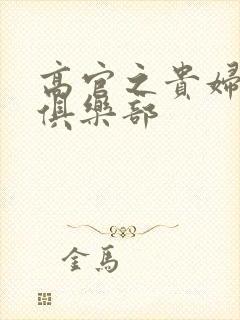 高官之貴婦
俱樂部
金馬